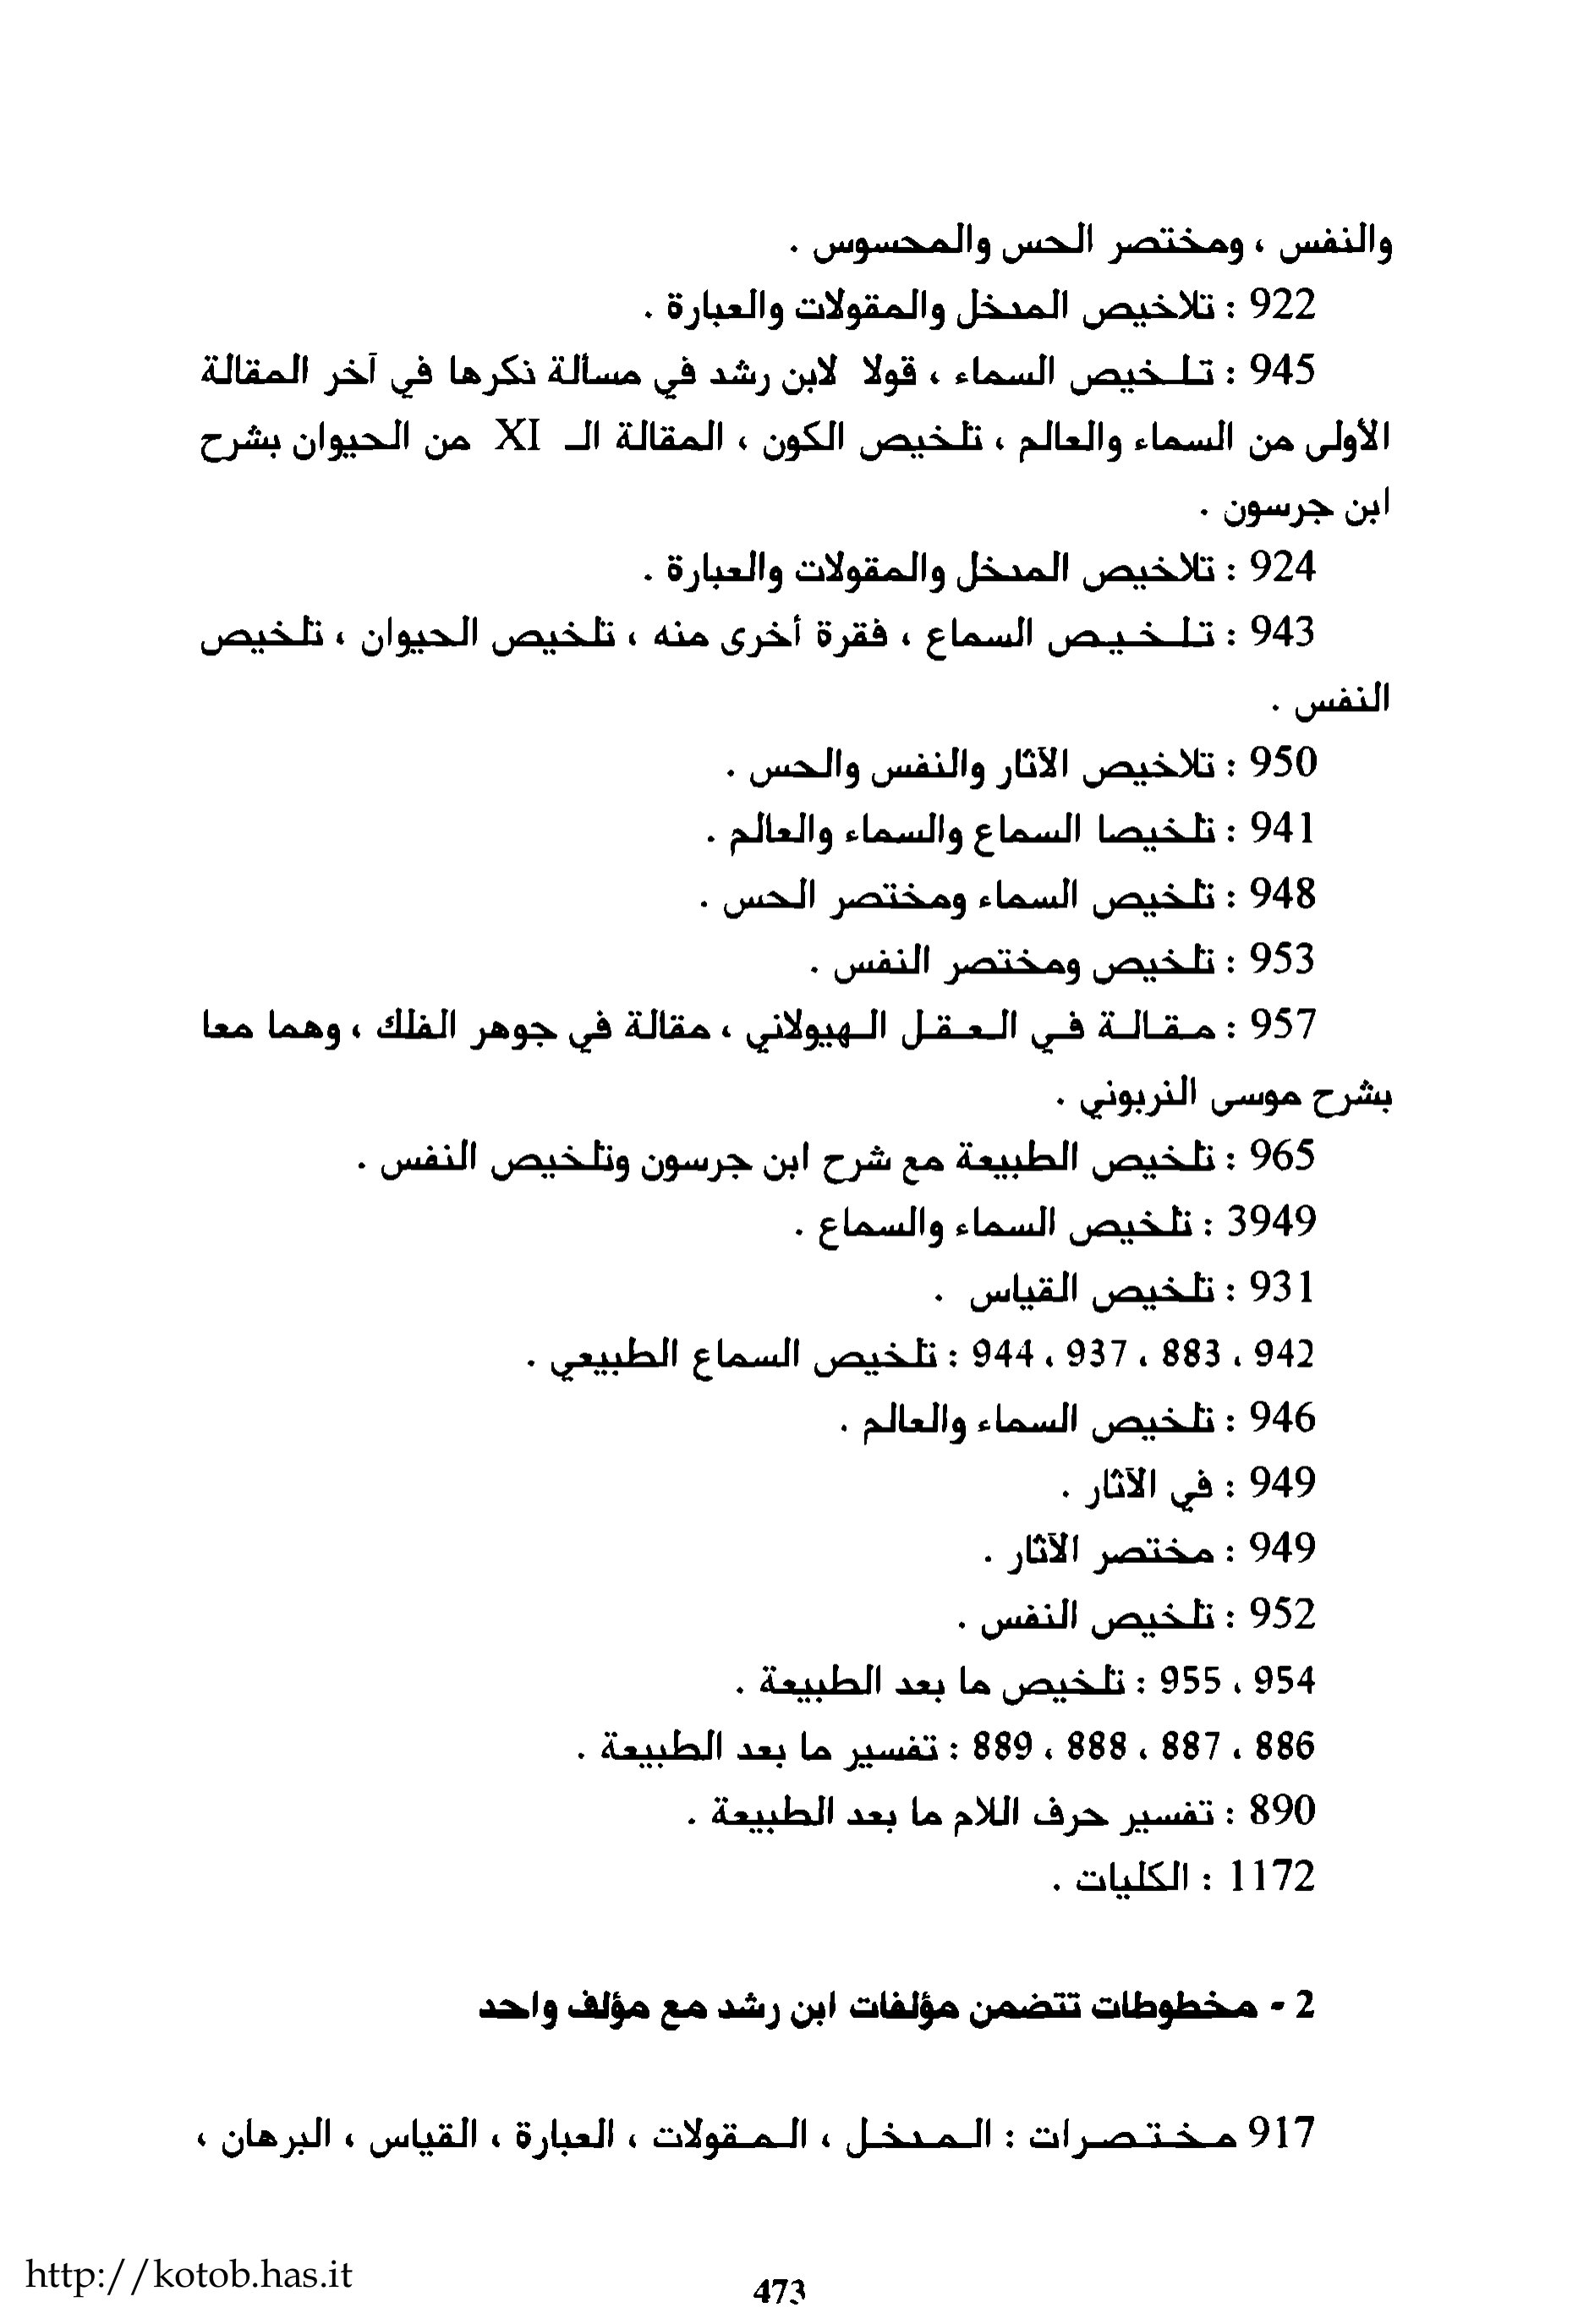 والنفس ، ومختصر الحس والمحسوس .
922 : تلاخيص المدخل والمقولات والعبارة .
945 : تلخيص السماء ، قولا لابن رشد في مسألة ذكرها في آخر المقالة
الأولى من السماء والعالم ، تلخيص الكون ، المقالة الـ XI من الحيوان بشرح
ابن جرسون .
924 : تلاخيص المدخل والمقولات والعبارة .
943 : تلخيص السماع ، فقرة أخرى منه ، تلخيص الحيوان ، تلخيص
النفس .
950 : تلاخيص الآثار والنفس والحس .
941 : تلخيصا السماع والسماء والعالم .
948 : تلخيص السماء ومختصر الحس .
953 : تلخيص ومختصر النفس .
957 : مقالة في العقل الهيولاني ، مقالة في جوهر الفلك ، وهما معا
بشرح موسى النربوني .
965 : تلخيص الطبيعة مع شرح ابن جرسون وتلخيص النفس .
3949 : تلخيص السماء والسماع .
931 : تلخيص القياس .
942 ، 883 ، 937 ، 944 : تلخيص السماع الطبيعي .
946 : تلخيص السماء والعالم .
949 : في الآثار .
949 : مختصر الآثار .
952 : تلخيص النفس .
954 ، 955 : تلخيص ما بعد الطبيعة .
886 ، 887 ، 888 ، 889 : تفسير ما بعد الطبيعة .
890 : تفسير حرف اللام ما بعد الطبيعة .
1172 : الكليات .
2 - مخطوطات تتضمن مؤلفات ابن رشد مع مؤلف واحد
917 مختصرات : المدخل ، المقولات ، العبارة ، القياس ، البرهان ،
http://kotob.has.it
473